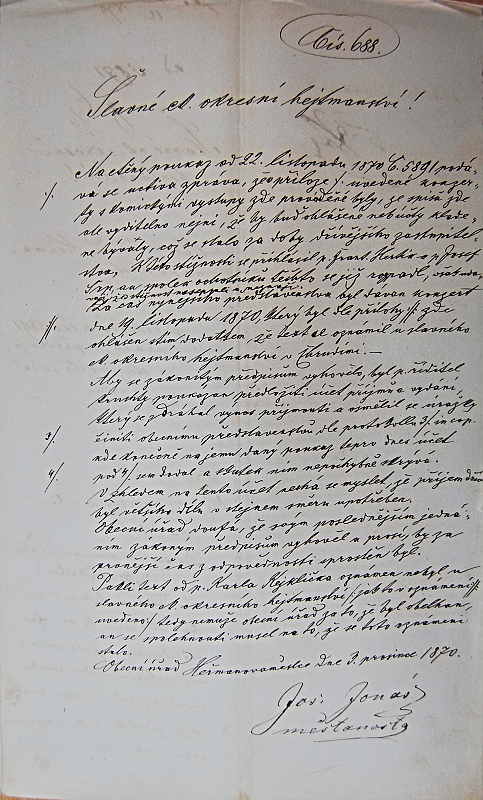 Čís. 688.
Slavné c. k. okresní hejtmanství!
Na ctěný poukaz od 22. listopadu 1870 č. 5891 podá-
·/. vá se uctivá zpráva, že v příloze ·/. uvedené konzer-
ty s komickými výstupy zde prováděné byly, ze spisů zde
ale viditelno nejní, že by buď ohlášené nebo účty klade-
ne bývaly, což se stalo za doby dřívějšího zastupitel-
stva. K této stížnosti se přihlásil p. Frant. a p. Josef
Srp, an spolek ochotníků těchto se již rozpadl,
Za čas nynějšího představenstva byl dáván konzert
//. dne 19. listopadu 1870, který byl dle přílohy //. zde
ohlášen s tím dodatkem, že text al oznámil u slavného
c. k. okresního hejtmanství v Chrudimi. —
Aby se zákonitým předpisům vyhovělo, byl p. ředitel
koushy poukázán předložiti účet příjmů a vydání,
který se zdráhal výnos přijmouti a osmělil se urážky
3/ činiti obecnímu představenstvu dle protokollu 3/. in cop.
kde konečně na jemu daný poukaz teprv dnes účet
4/. pod 4/. sem dodal a skutek ním nepochybně skrývá.
V zhledem na tento účet nechá se myslet, že příjem
byl většího dílu v stejném směru upotřeben.
Obecní úřad doufá, že svým poslednějším jedná-
ním zákonym předpisům vyhověl a prosí, by za
pronější čas z odpovědnosti sproštěn byl.
Pakli text od p. Karla oznámen nebyl u
slavného c. k. okresního hejtmanství jak to v oznámení //.
uvedeno tedy nemůže obecní úřad za to, že byl obelhán,
an se spolehnouti musel na to, že se toto oznámení
stalo.
Obecní úřad Heřmanoměstec dne 3. prosince 1870.
Jos. Jonáš
měšťanosta